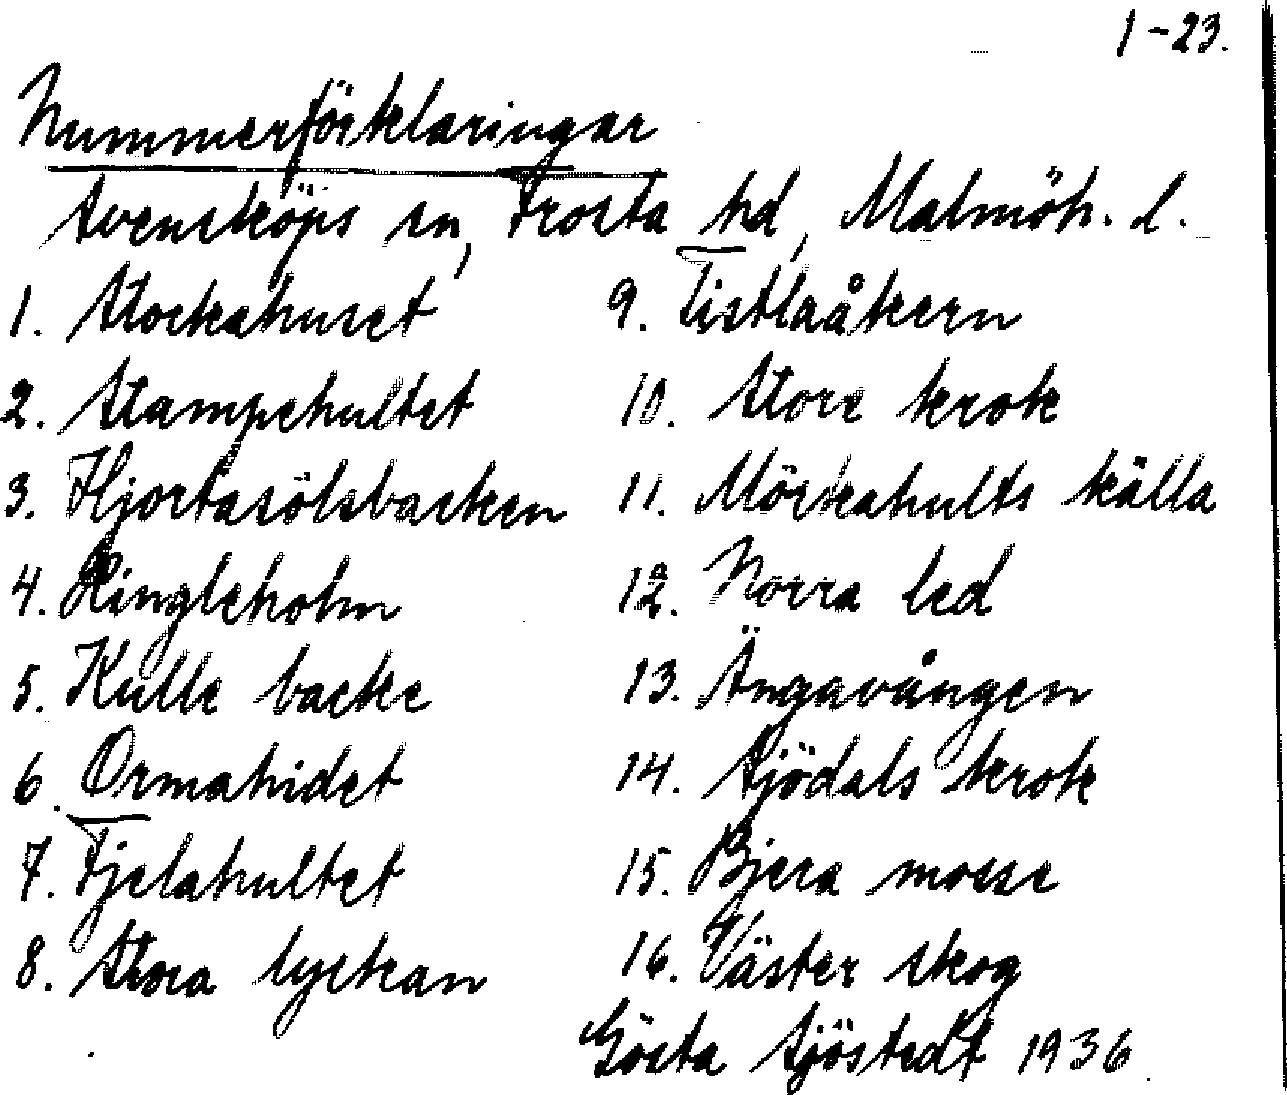 1-23.
Nummerförklaringar
Svensköps sn, Frosta hd, Malmöh. l.
1. Stockahuset
2. Stampehultet
3. Hjortasölsbacken
4. Ringleholm
5. Kulle backe
6. Ormahidet
7. Fjelahultet
8. Stora lyckan
9. Tistlaåkern
10. Store krok
11. Mörkahults källa
12. Norra led
13. Ängavången
14. Sjödals krok
15. Bjera mosse
16. Väster skog
Gösta Sjöstedt 1936